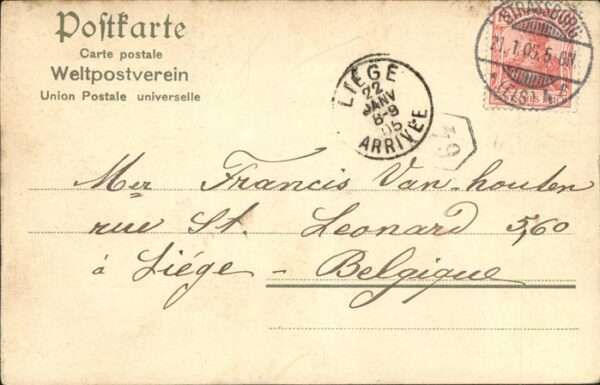 Postkarte
Carte postale
Weltpostverein
Union Postale universelle
STRASSBURG
21.1.05.5-6N.
(ELS) 1.
LIÉGE
22
JANV
8-9
05
ARRIVÉE
64
Mer Francis Van-houten
rue St. Leonard 560
à Liége - Belgique